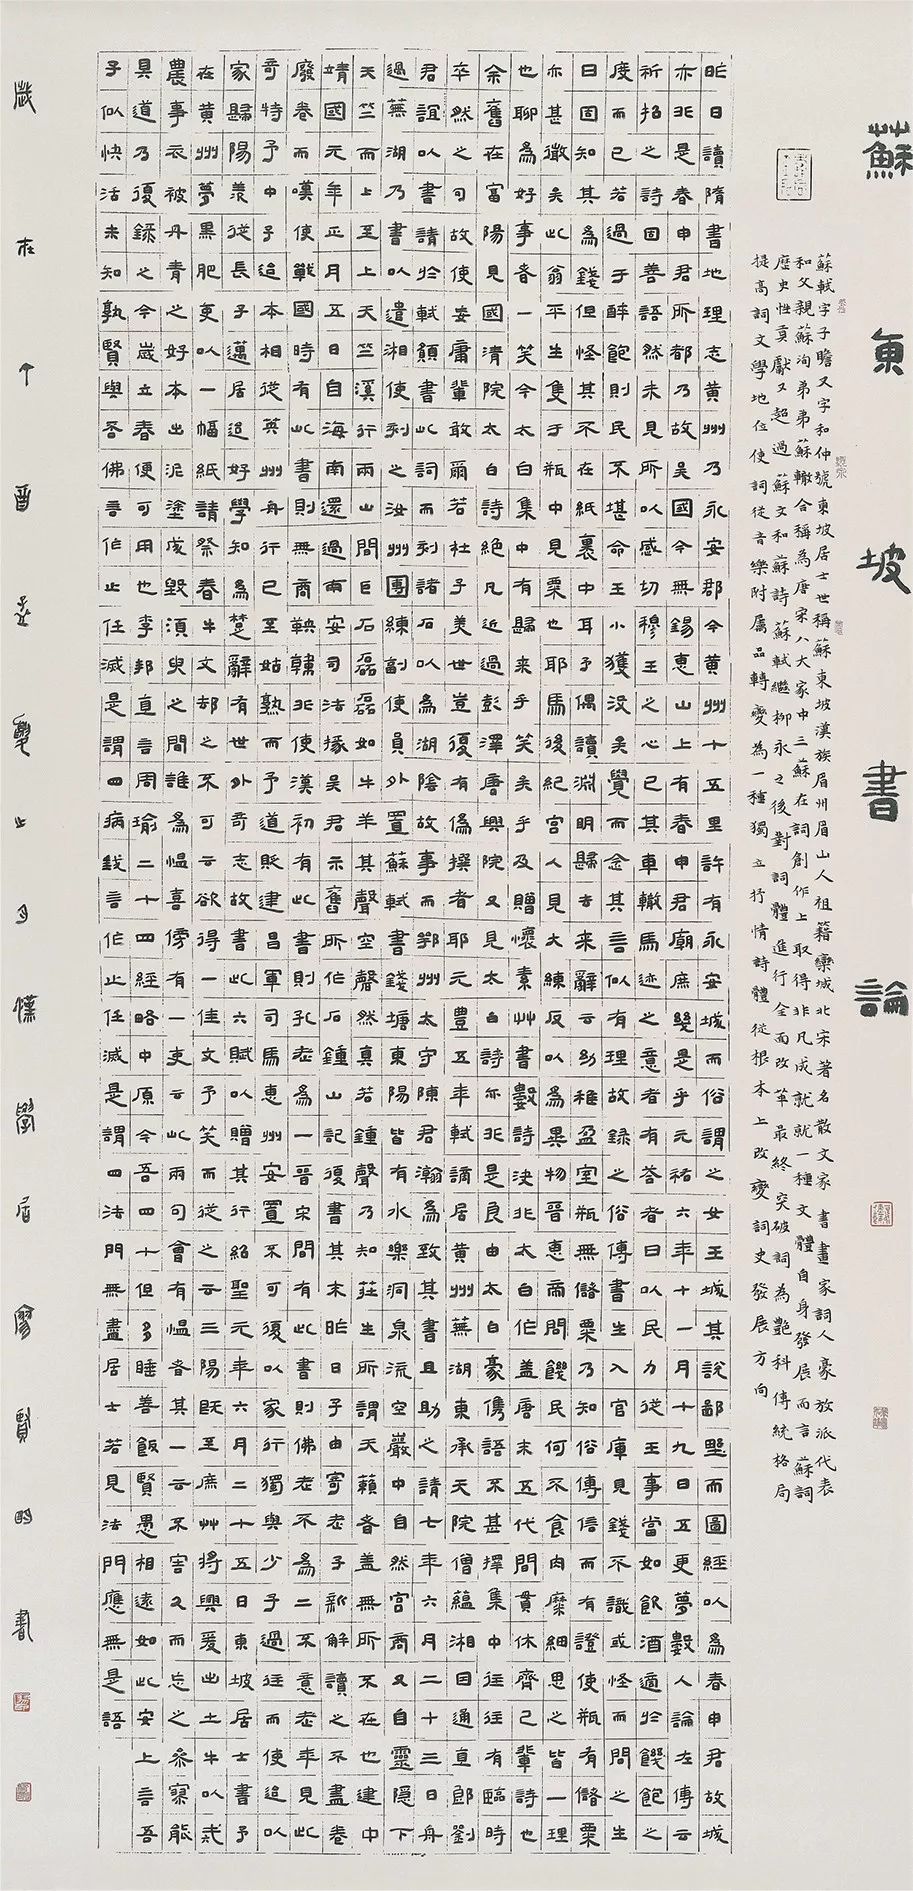 蘇東坡書論
蘇軾字子瞻又字和仲號東坡居士世稱蘇東坡漢族眉州眉山人祖籍欒城北宋著名散文家書畫家詞人豪放派代表
和父親蘇洵弟弟蘇轍合稱為唐宋八大家中三蘇在詞創作上取得非凡成就就一種文體自身發展而言蘇詞
歷史性貢獻又超過蘇文和蘇詩蘇軾繼柳永之後對詞體進行全面改革最終突破詞為艷科傳統格局
提高詞文學地位使詞從音樂附屬品轉變為一種獨立抒情詩體從根本上改變詞史發展方向
昨日讀隋書地理志黃州乃永安郡今黃州十五里許有永安城而俗謂之女王城其說鄙野而圖經以為春申君故城
亦非是春申君所都乃故吳國今無錫惠山上有春申君廟庶幾是乎元祐六年十一月十九日五更夢數人論左傳云
祈招之詩固善語然未見所以感切穆王之心已其車轍馬迹之意者有答者曰以民力從王事當如飲酒適於饑飽之
度而已若過于醉飽則民不堪命王小獲沒矣覺而念其言似有理故錄之俗傳書生入官庫見錢不識或怪而問之生
曰固知其為錢但怪其不在紙裹中耳予偶讀淵明歸去來辭云幼稚盈室瓶無儲粟乃知俗傳信而有證使瓶有儲粟
亦甚微矣此翁平生隻于瓶中見粟也耶馬後紀宮人見大練反以為異物晉惠帝問饑民何不食肉糜細思之皆一理
也聊為好事者一笑今太白集中有歸来乎笑矣乎及贈懷素艸書數詩決非太白作蓋唐末五代間貫休齊己輩詩也
余舊在富陽見國清院太白詩絕凡近過彭澤唐興院又見太白詩亦非是良由太白豪儁語不甚擇集中往往有臨時
卒然之句故使妄庸輩敢爾若杜子美世豈復有偽撰者耶元豐五年軾謫居黃州蕪湖東承天院僧蘊湘因通直郎劉
君誼以書請於軾願書此詞而刻諸石以為湖陰故事而鄂州太守陳君瀚為致其書且助之請七年六月二十三日舟
過蕪湖乃書以遺湘使刻之汝州團練副使員外置蘇軾書錢塘東陽皆有水樂洞泉流空巖中自然宮商又自靈隱下
天竺而上至上天竺溪行兩山間巨石磊磊如牛羊其聲空礱然真若鍾聲乃知莊生所謂天籟者蓋無所不在也建中
靖國元年正月五日自海南還過南安司法掾吳君示舊所作石鍾山記復書其末昨日子由寄老子新解讀之不盡卷
廢卷而嘆使戰國時有此書則無商鞅韓非使漢初有此書則孔老為一晉宋間有此書則佛老不為二不意老年見此
奇特予中子迨本相從英州舟行已至姑熟而予道貶建昌軍司馬惠州安置不可復以家行獨與少子過往而使迨以
家歸陽羨從長子邁居迨好學知為楚辭有世外奇志故書此六賦以贈其行紹聖元年六月二十五日東坡居士書予
在黃州夢黑肥吏以一幅紙請祭春牛文却之不可云欲得一佳文予笑而從之云三陽既至庶艸將興爰出土牛以戒
農事衣被丹青之好本出泥塗成毀須臾之間誰為慍喜傍有一吏云此兩句會有慍者其一云不害久而忘之參寥能
具道乃復錄之今歲立春便可用也李邦直言周瑜二十四經略中原今吾四十但多睡善飯賢愚相遠如此安上言吾
子似快活未知孰賢與否佛言作止任滅是謂四病錢言作止任滅是謂四法門無盡居士若見法門應無是語
歲在丁酉孟夏之月學居賢明書